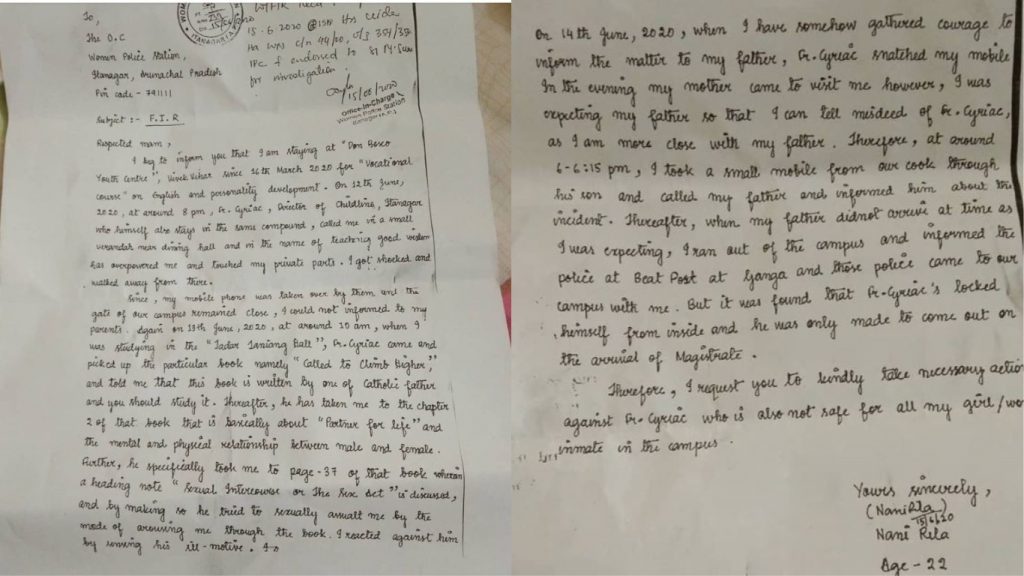 To,
The O.C
Women Police Station,
Itanagar, Arunachal Pradesh
Pin code - 791111
WOM
ITANAGAR
15.6.2020 @ 1530 Hrs vide
Ita WPS c/n 44/20, U/S 354/
IPC & endorsed to SI
for investigation.
15/06/2020
Office-In-Charge
Women Police Station
Itanagar
Subject :- F.I.R
Respected mam,
I beg to inform you that I am staying at "Don Bosco
Youth Centre", Vivek Vihar since 16th March 2020 for "Vocational
course" on English and personality development. On 12th June,
2020, at around 8 pm, Fr. Cyriac, Director of Childline, Itanagar
who himself also stays in the same compound, called me in a small
verandah near dining hall and in the name of teaching good wisdom
has overpowered me and touched my private parts. I got shocked and
walked away from there.
Since, my mobile phone was taken over by them and the
gate of our campus remained close, I could not informed to my
parents. Again on 13th June, 2020, at around 10 am, when I
was studying in the "Tadar Taniang Hall", Fr. Cyriac came and
picked up the particular book namely "Called to Climb Higher,"
and told me that this book is written by one of Catholic father
and you should study it. Thereafter, he has taken me to the chapter
2 of that book that is basically about "Partner for life" and
the mental and physical relationship between male and female.
Further, he specifically took me to page-37 of that book wherein
a heading note "Sexual Intercourse or The Sex Act" is discussed,
and by making so he tried to sexually assualt me by the
mode of arousing me through the book. I reacted against him
by sensing his ill-motive.
On 14th June, 2020, when I have somehow gathered courage to
inform the matter to my father, Fr. Cyriac snatched my mobile
In the evening my mother came to visit me however, I was
expecting my father so that I can tell misdeed of Fr. Cyriac,
as I am more close with my father. Therefore, at around
6-6:15 pm, I took a small mobile from our cook through
his son and called my father and informed him about the
incident. Thereafter, when my father didnot arrive at time as
I was expecting, I ran out of the campus and informed the
police at Beat Post at Ganga and those police came to our
campus with me. But it was found that Fr. Cyriac's locked
himself from inside and he was only made to come out on
the arrival of Magistrate.
Therefore, I request you to kindly take necessary action
against Fr. Cyriac who is also not safe for all my girl/wo
inmate in the campus.
Yours sincerely,
(Nani Rila)
15/6/20
Nani Rila
Age - 22